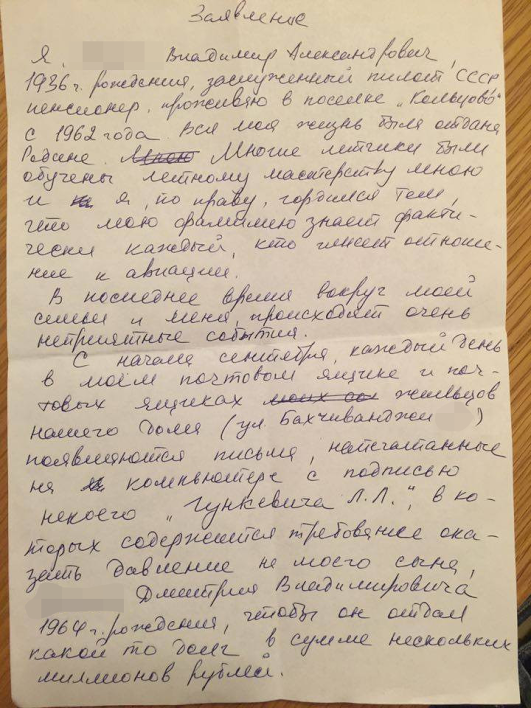 Заявление
Я, Владимир Александрович,
1936 г. рождения, заслуженный пилот СССР
пенсионер. проживаю в поселке „Кольцово"
с 1962 года. Вся моя жизнь была отдана
Родине. Мною Многие летчики были
обучены летному мастерству мною
и я, по праву, гордился тем,
что мою фамилию знает факти-
чески каждый, кто имеет отноше-
ние к авиации.
В последнее время вокруг моей
семьи и меня, происходят очень
неприятные события.
С начала сентября, каждый день
в моём почтовом ящике и поч-
товых ящиках жильцов
нашего дома (ул. Бахчиванджи )
появляются письма, напечатанные
на компьютере с подписью
некоего „Гункевича Л.Л.", в ко-
торых содержится требование ока-
зать давление на моего сына,
Дмитрия Владимировича
1964 г. рождения, чтобы он отдал
какой то долг в сумме нескольких
миллионов рублей.